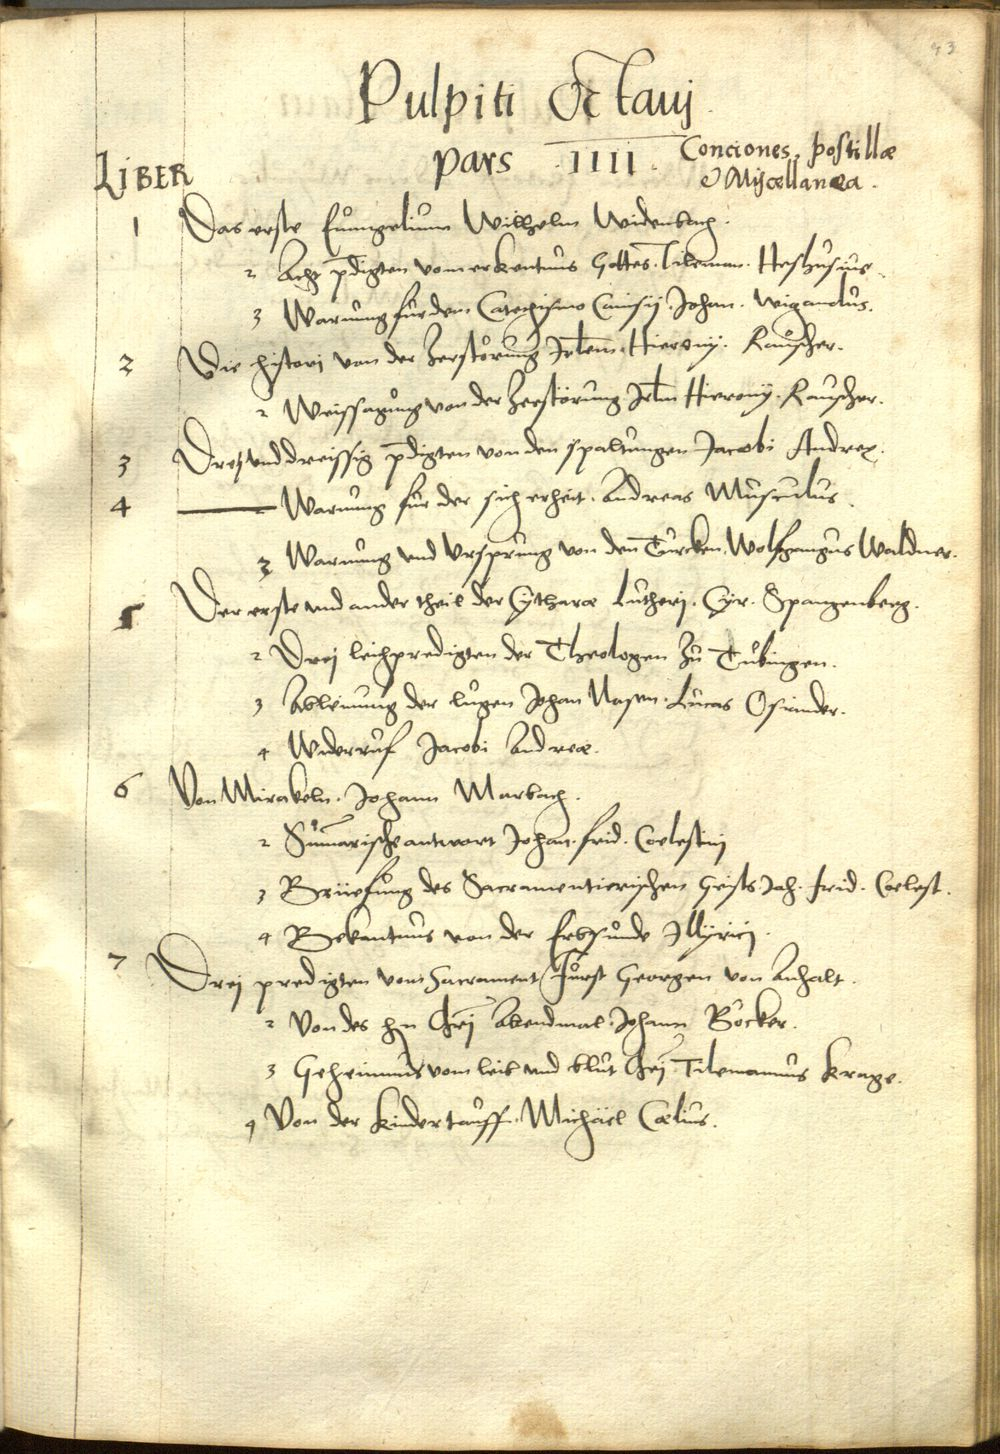 43
Pulpiti Octauj
pars IIII. Conciones, postillæ
& Miscellanæa.
LIBER
1 Das erste Euangelium Wilhelm Widenbach.
2 Acht pdigten vom erkentnus Gottes. Tileman. Heshusius.
3 Warnung für dem Catechismo Canisij. Johan. Wigandus.
2 Die histori von der Zerstörung Jrlem. Hierony. Rauscher.
2 Weissagung von der Zerstörung Jrlm Hierony. Rauscher.
3 Drej vnd dreissig pdigten von den spaltungen Jacobi Andreæ.
4 2 Warnung für der sicherheit. Andreas Musculus.
3 Warnung vnd Vrsprung von den Türcken. Wolfgangus Waldner.
5 Der erste vnd ander theil der Cytharæ Lutherj. Cyr. Spangenberg.
2 Drej leichpredigten der Theologen zu Tübingen.
3 Ableinung der lugen Johan Nasen. Lucas Osiander.
4 Widerruf Jacobi Andreæ.
6 Von Mirakeln. Johann Marbach.
2 Sumarische antwort Johan. frid. Coelestinj
3 Brüefung des Sacramentierischen Geists Joh. frid. Coelest.
4 Bekantnus von der Erbsunde Jllyricj.
7 Drej predigten vom Sacrament Fürst Georgen von Anhalt.
2 Von des hn Chrj Abendmal. Johann Böcker.
3 Geheimnus vom leib vnd blut Chrj Tilemannus Krage.
4 Von der kindertauff. Michäel Cœlius.